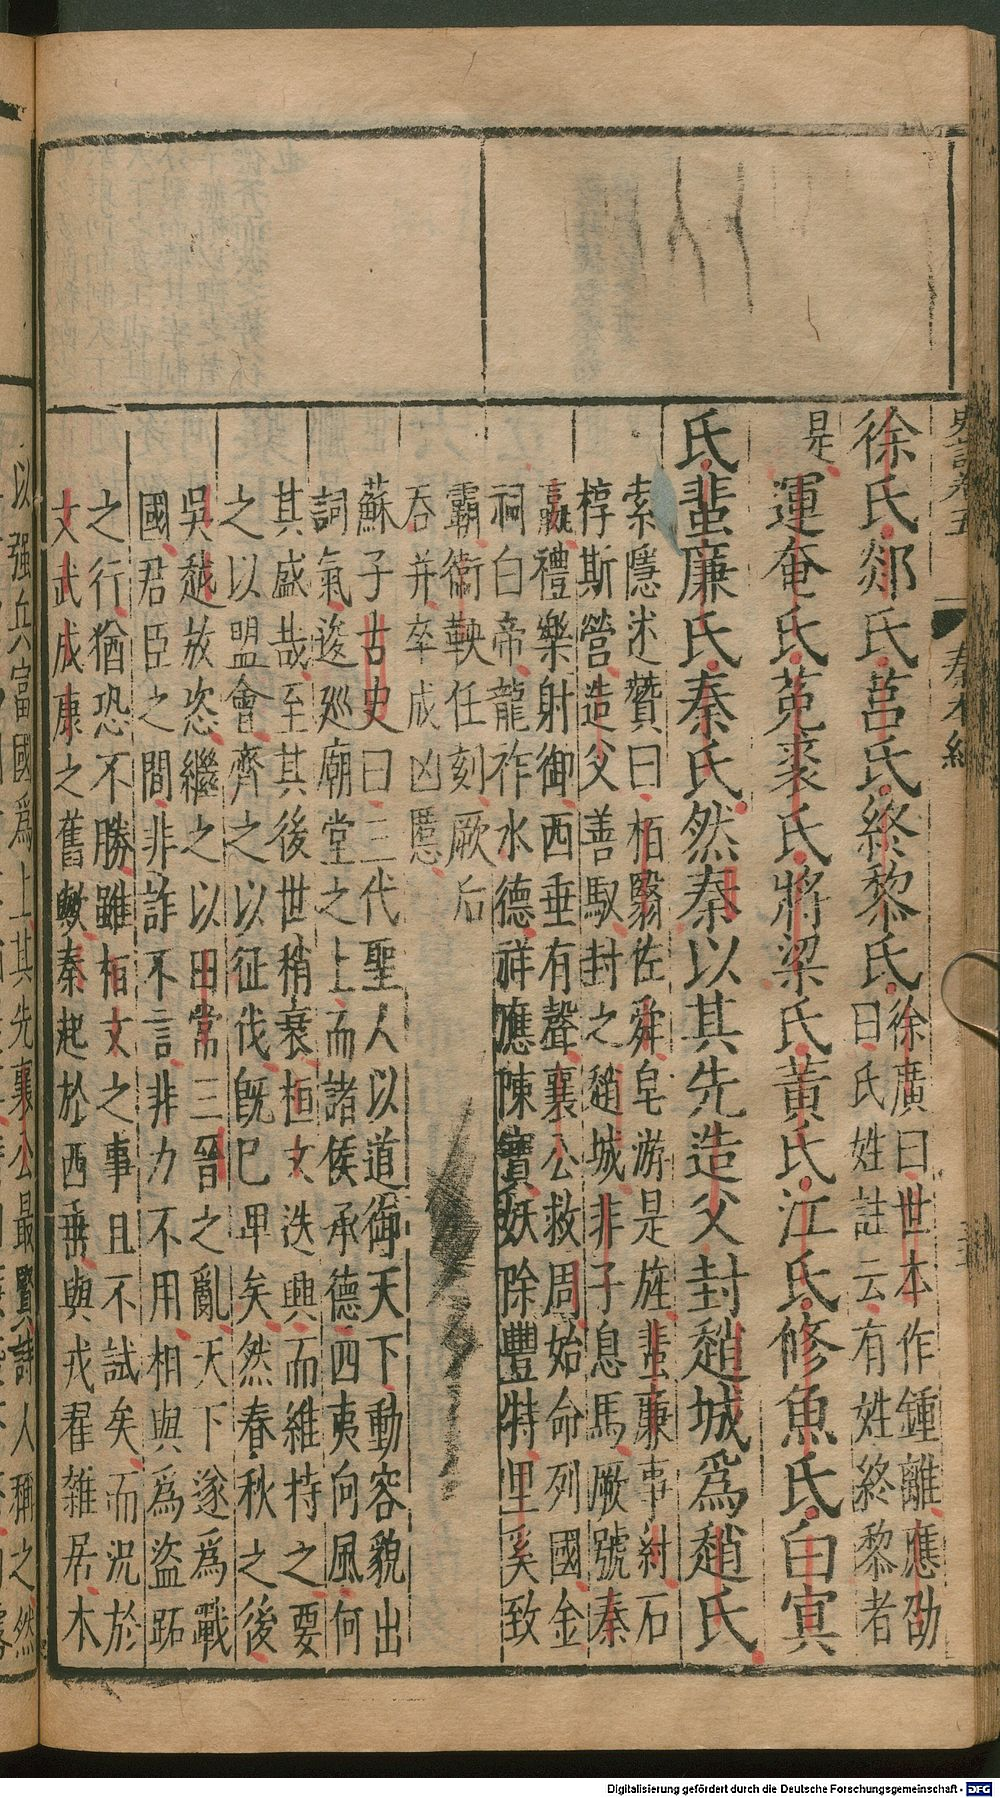 徐氏郯氏莒氏終黎氏徐廣曰世本作鍾離應劭
曰氏姓註云有姓終黎者
是運奄氏菟裘氏將梁氏黃氏江氏修魚氏白冥
氏蜚廉氏秦氏然秦以其先造父封趙城爲趙氏
索隱述贊曰柏翳佐舜皂游是旌蜚廉事紂石
椁斯營造父善馭封之趙城非子息馬厥號秦
嬴禮樂射御西垂有聲襄公救周始命列國金
祠白帝龍祚水德祥應陳寶妖除豐特里奚致
霸衞鞅任刻厥后
吞并卒成凶慝
蘇子古史曰三代聖人以道御天下動容貌出
詞氣逡廵廟堂之上而諸侯承德四夷向風何
其盛哉至其後世稍衰桓文迭興而維持之要
之以盟會齊之以征伐旣已卑矣然春秋之後
吳越放恣繼之以田常三晉之亂天下遂爲戰
國君臣之間非詐不言非力不用相與爲盜跖
之行猶恐不勝雖桓文之事且不試矣而況於
文武成康之舊歟秦起於西垂與戎翟雜居木
以強兵富國爲上其先襄公最賢詩人稱之然
Digitalisierung gefördert durch die Deutsche Forschungsgemeinschaft - DFG